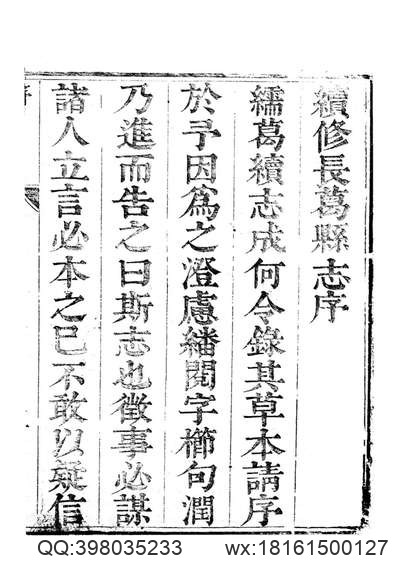 續修長葛縣志序
繻葛續志成何令錄其草本請序
於予因為之澄慮繙閱字櫛句潤
乃進而告之曰斯志也徵事必謀
諸人立言必本之已不敢以疑信
QQ:398035233 wx:18161500127